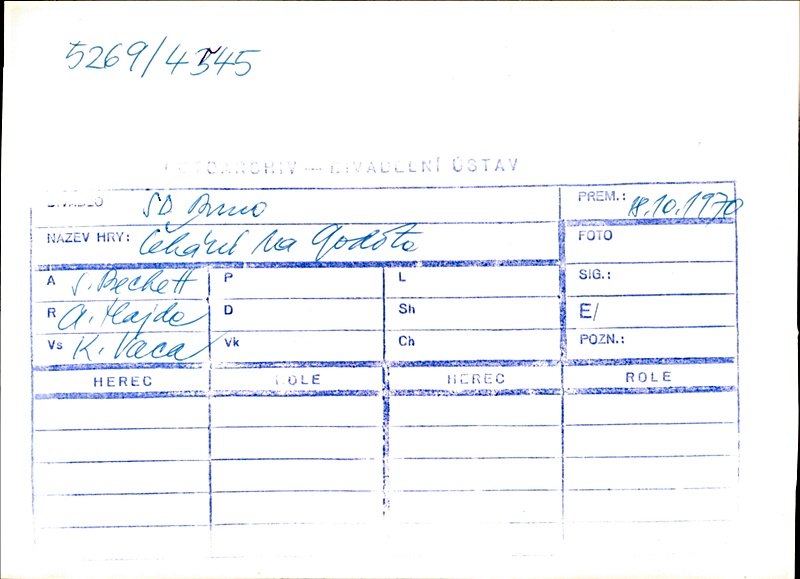 5269/4345
FOTOARCHIV — DIVADELNÍ ÚSTAV
DIVADLO SD Brno PREM.: 18.10.1970
NÁZEV HRY: Čekání na Godota FOTO
A S. Beckett P L SIG.:
R A. Hajda D Sh E/
Vs K. Vaca Vk Ch POZN.:
HEREC ROLE HEREC ROLE